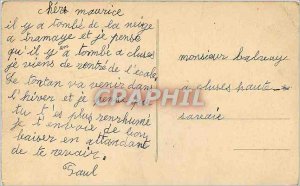 chèr maurice
il y a tombé de la neige
a tramaye et je pense
qu'il y en a tombé a cluses
je viens de rentré de l'école
le tontan va venir dans
l'hiver et je pense que
tu n'es plus renrhumé
je t'envoie de bon
baiser en attandant
de te revoir.
Paul
monsieur
a cluses haute
savoie
CARTOPHIL